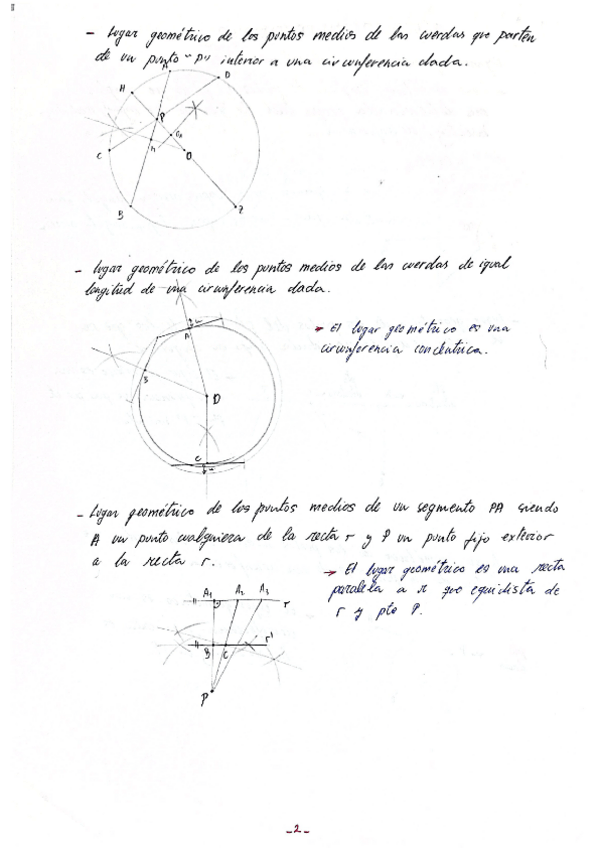 - Lugar geométrico de los puntos medios de las cuerdas que parten
de un punto "P" interior a una circunferencia dada.
A
H
D
P
M
O
C
B
- Lugar geométrico de los puntos medios de las cuerdas de igual
longitud de una circunferencia dada.
A
→ El lugar geométrico es una
circunferencia concéntrica.
B
O
C
- Lugar geométrico de los puntos medios de un segmento PA siendo
A un punto cualquiera de la recta r y P un punto fijo exterior
a la recta r.
→ El lugar geométrico es una recta
paralela a r que equidista de
r y pto P.
A1 A2 A3
r
r'
B C
P
-2-